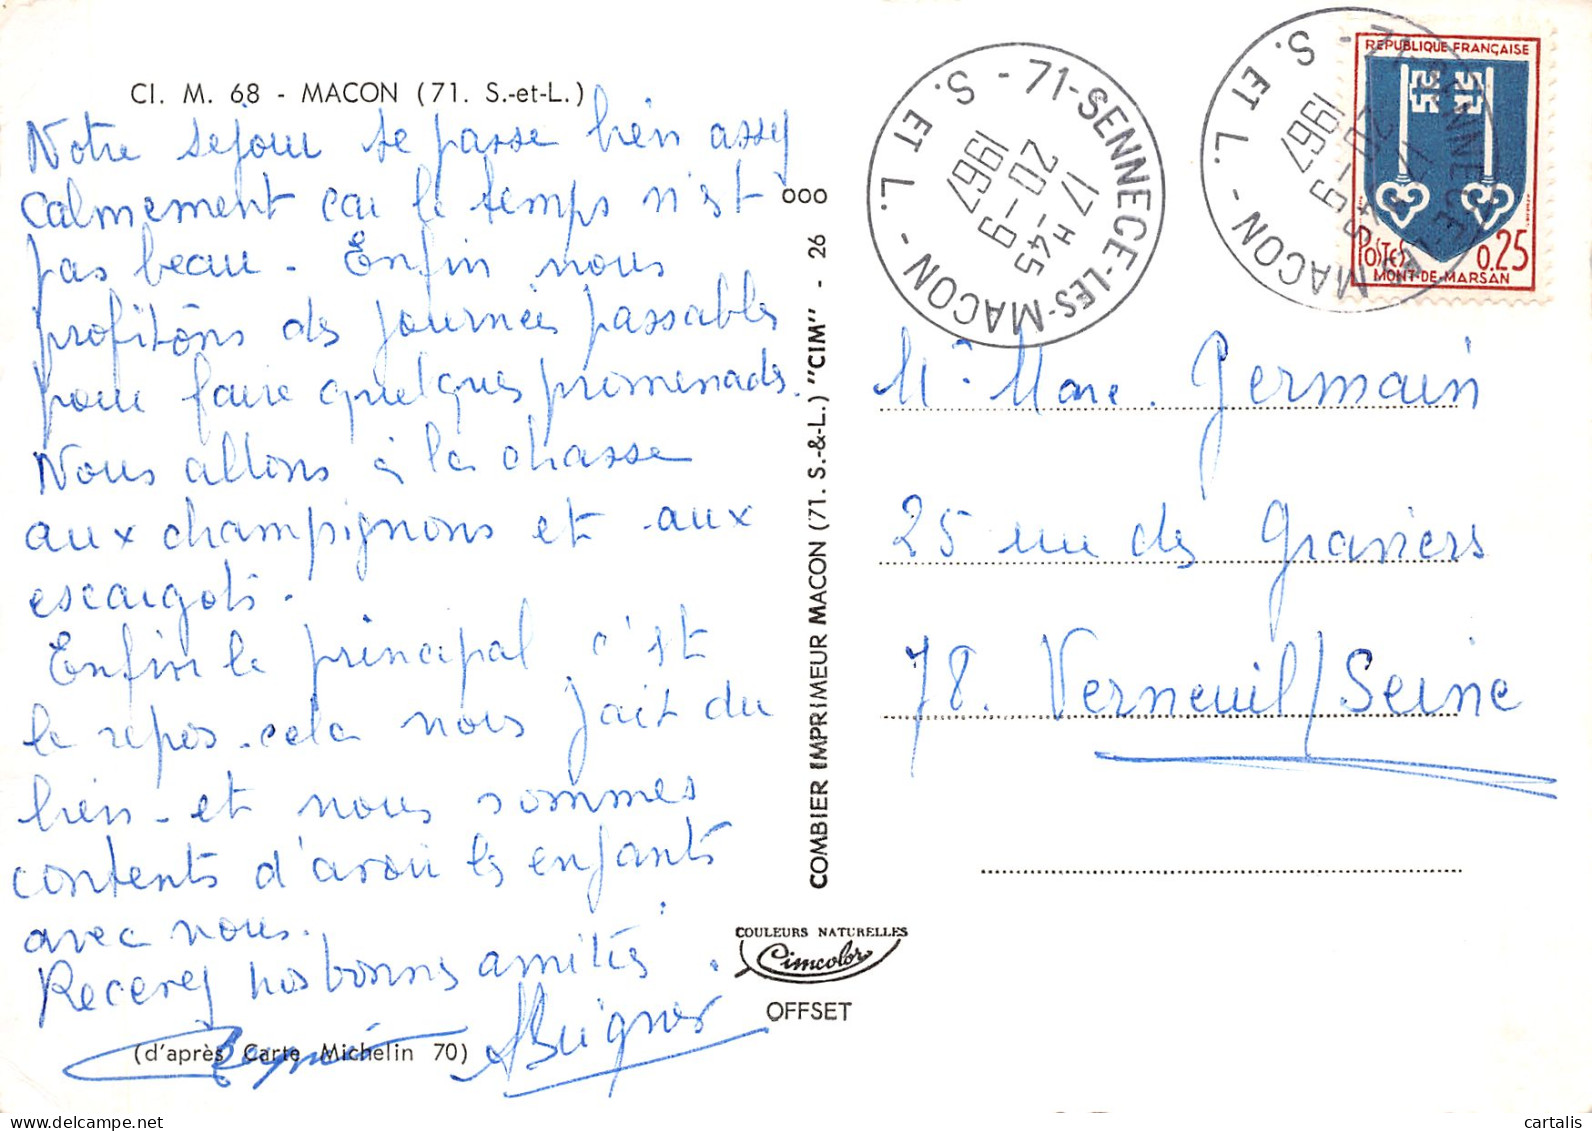 CI. M. 68 - MACON (71. S.-et-L.)
Notre séjour se passe bien assez
calmement car le temps n'est
pas beau. Enfin nous
profitons des journées passables
pour faire quelques promenades.
Nous allons à la chasse
aux champignons et aux
escargots.
Enfin le principal c'est
le repos. cela nous fait du
bien - et nous sommes
contents d'avoir les enfants
avec nous.
Recevez nos bonnes amitiés.
(d'après Carte Michelin 70)
COMBIER IMPRIMEUR MACON (71. S.-&-L.) "CIM" - 26 000
COULEURS NATURELLES
Cimcolor
OFFSET
71-SENNECE-LES-MACON - S. ET L. -
17 H 45
20-9
1967
71-SENNECE-LES-MACON - S. ET L. -
17 H 45
20-9
1967
REPUBLIQUE FRANÇAISE
POSTES 0,25
MONT-DE-MARSAN
Mr Marc Germain
25 rue des Graviers
78. Verneuil/Seine
www.delcampe.net
cartalis